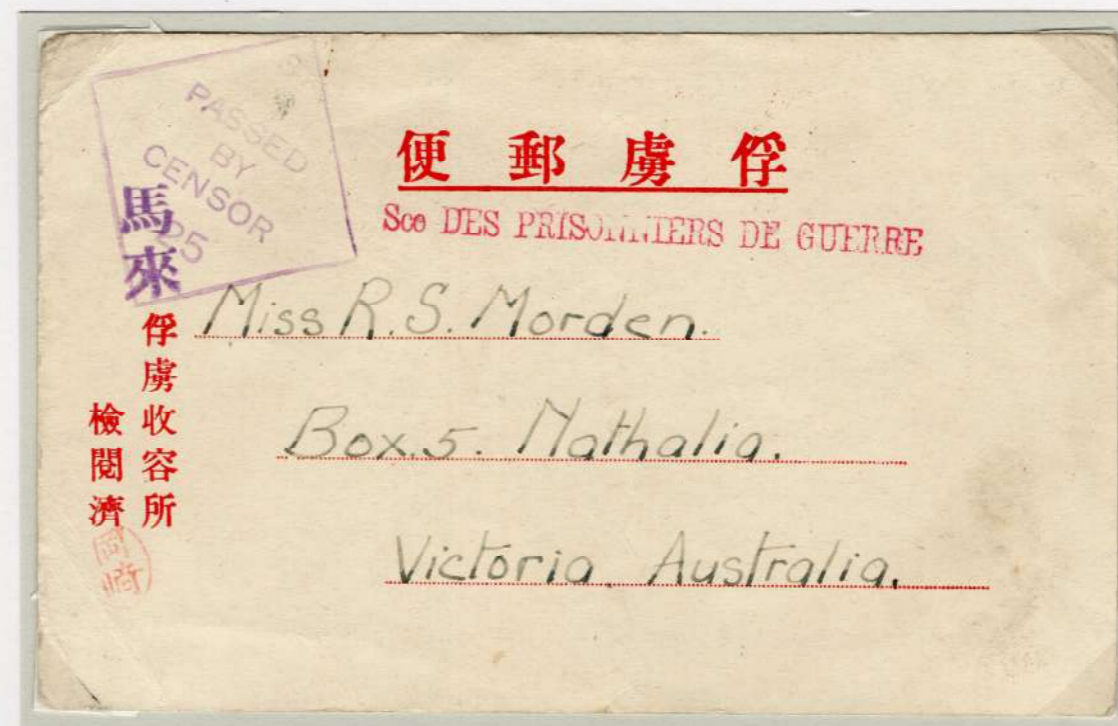 PASSED
BY
CENSOR
25
俘虜郵便
Sce DES PRISONNIERS DE GUERRE
馬來
俘虜收容所
檢閱濟
岡崎
Miss R.S. Morden.
Box.5. Nathalia.
Victoria Australia.